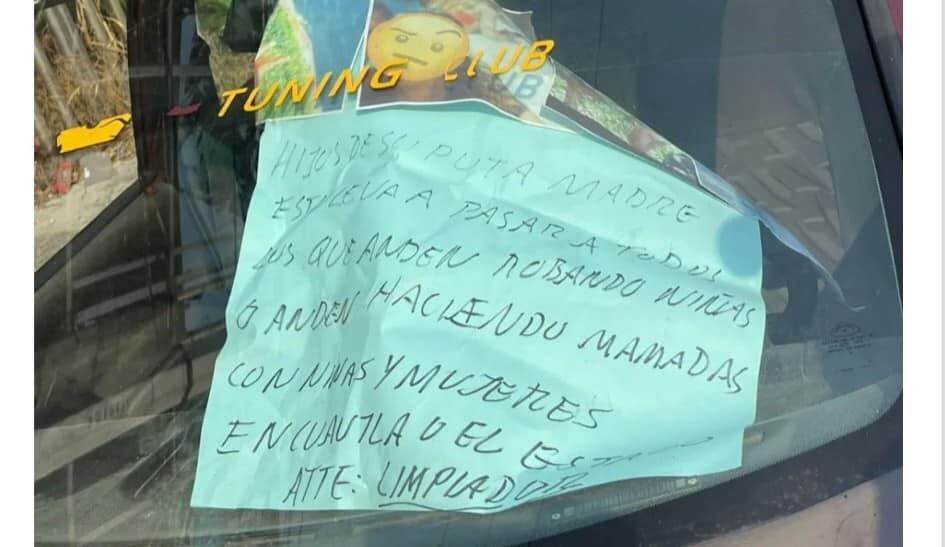 TUNING CLUB
UB
HIJOS DE SU PUTA MADRE
ESTO LEVA A PASAR A TODOS
LOS QUE ANDEN ROBANDO NIÑAS
O ANDEN HACIENDO MAMADAS
CON NIÑAS Y MUJERES
EN CUAUTLA O EL ESTADO
ATTE: LIMPIADOR